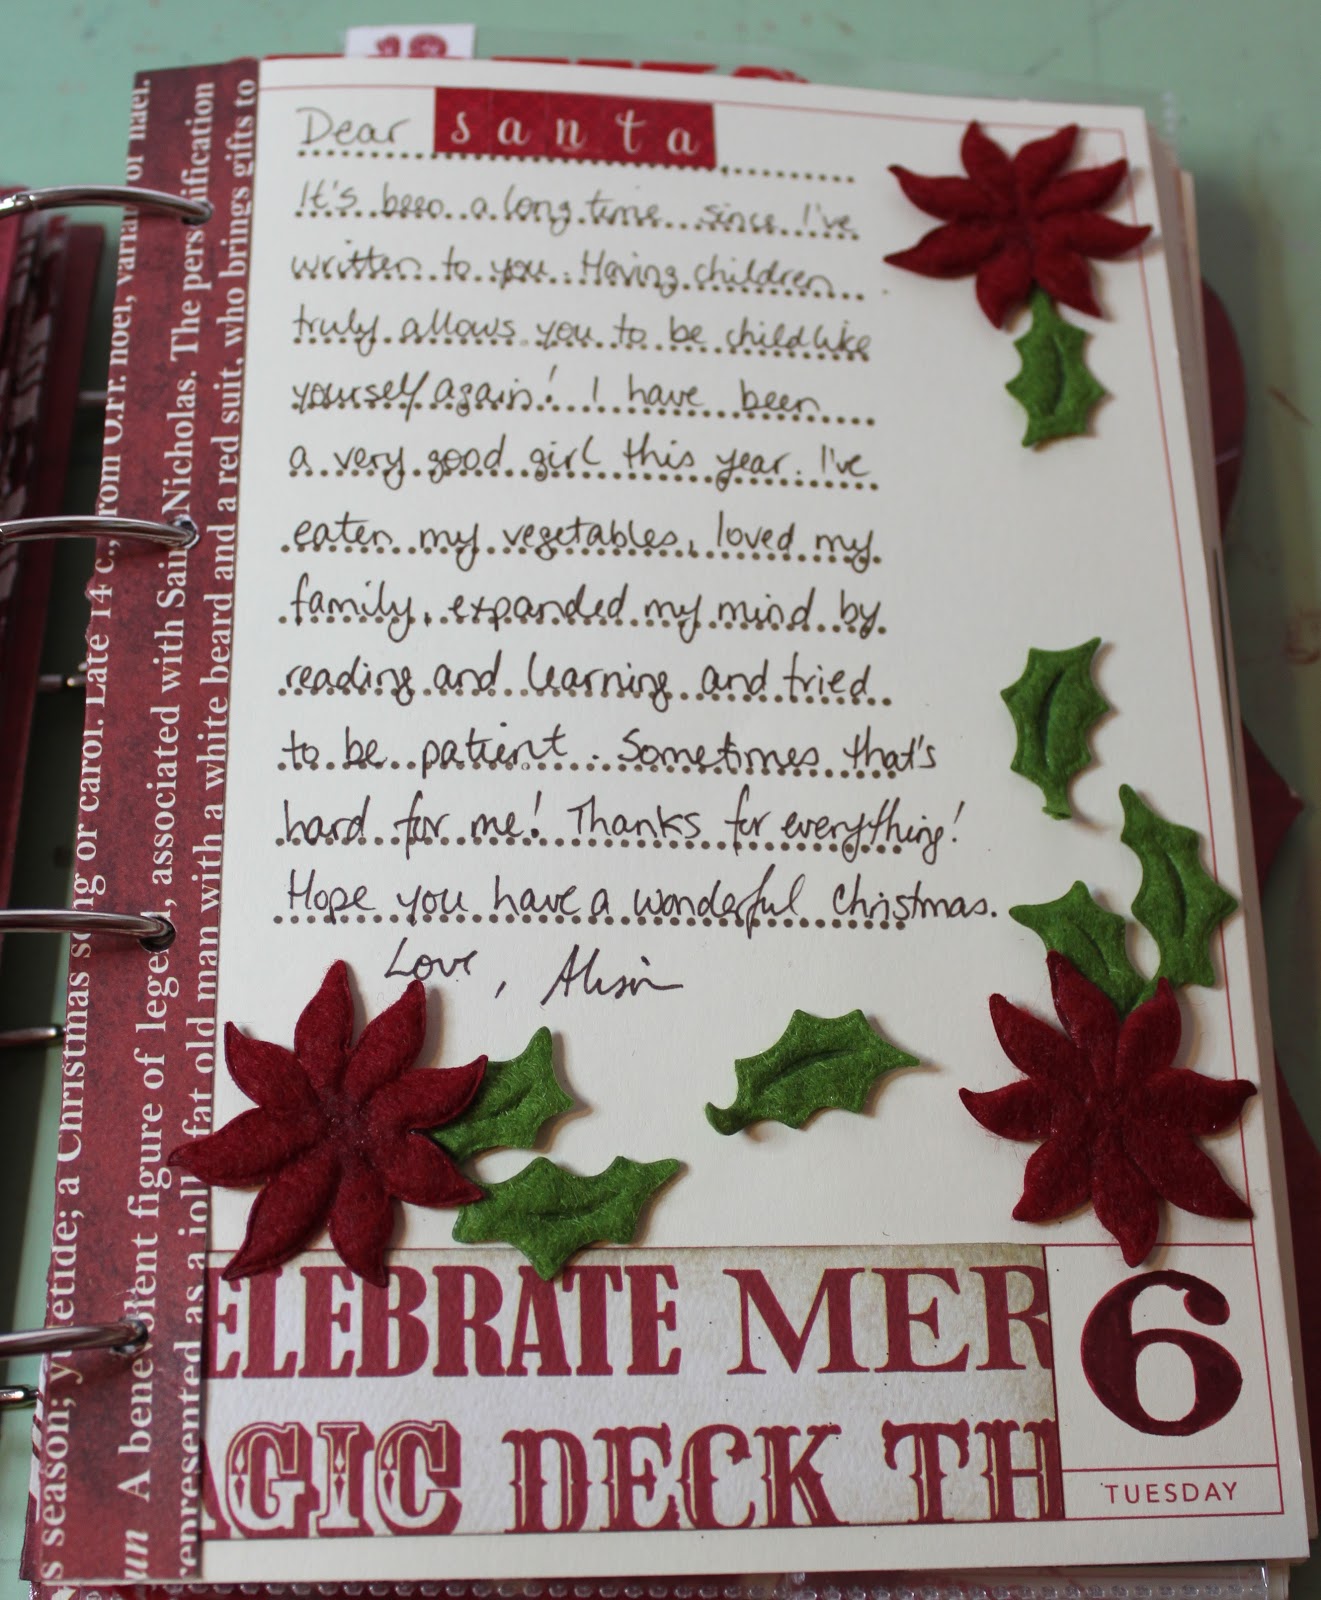 Dear santa
It's been a long time since I've
written to you. Having children
truly allows you to be childlike
yourself again! I have been
a very good girl this year. I've
eaten my vegetables, loved my
family, expanded my mind by
reading and learning and tried
to be patient. Sometimes that's
hard for me! Thanks for everything!
Hope you have a wonderful Christmas.
Love, Alison
ELEBRATE MER
AGIC DECK TH
6
TUESDAY
or nael.
noel, varia
from O.Fr.
song or carol. Late 14 c.,
s season; yuletide; a Christmas
un A benevolent figure of legend, associated with Saint Nicholas. The personification
represented as a jolly fat old man with a white beard and a red suit, who brings gifts to